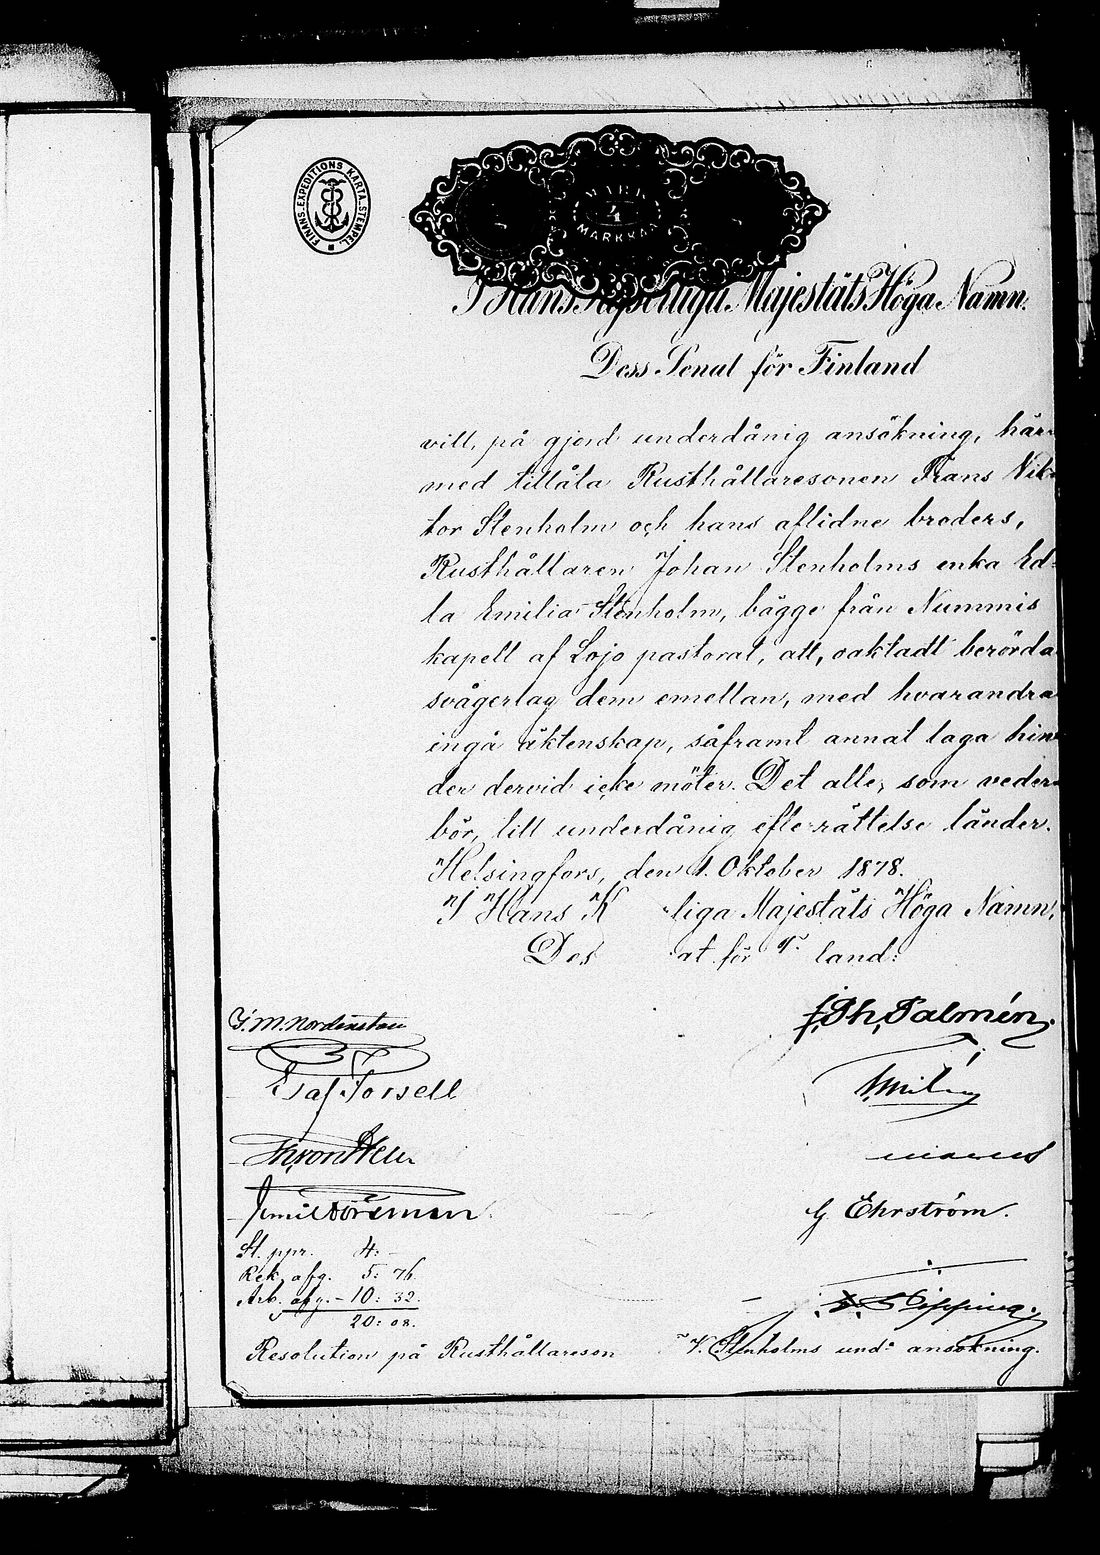 FINANS-EXPEDITIONS KARTA-STEMPEL
MARK
4
MARKKAA
I Hans Kejserliga Majestäts Höga Namn.
Dess Senat för Finland
vill, på gjord underdånig ansökning, här-
med tillåta Rusthållaresonen Frans Vik-
tor Stenholm och hans aflidne broders,
Rusthållaren Johan Stenholms enka Ed-
la Emilia Stenholm, bägge från Nummis
kapell af Lojo pastorat, att, oaktadt berörda
svågerlag dem emellan, med hvarandra
ingå äktenskap, såframt annat laga hin
der dervid icke möter. Det alle, som veder-
bör, till underdånig efterrättelse länder.
Helsingfors, den 1. Oktober 1878.
I Hans K liga Majestäts Höga Namn,
Des at för land:
J. Ph. Palmén.
J. M. Nordenstam
Olof Forsell
Emil Boreman
G. Ehrström.
St. ppr. 4: -
Rek. afg. 5: 76.
Arb. afg. - 10: 32.
20: 08.
Resolution på Rusthållareson V. Stenholms und: ansökning.